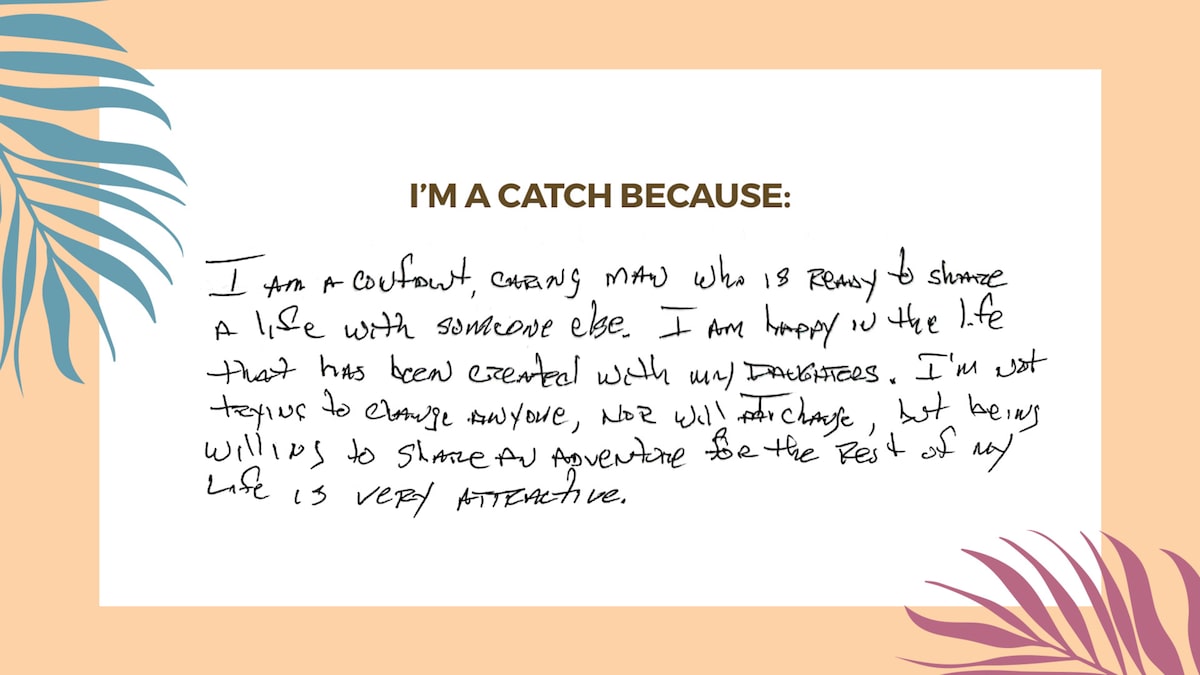 I'M A CATCH BECAUSE:
I AM A confident, CARING MAN who is READY to SHARE
A life with someone else. I AM happy in the life
that HAS been CREATED with my DAUGHTERS. I'm not
TRYING to change ANYONE, NOR will I change, but being
willing to SHARE AN ADVENTURE for the REST of my
Life is VERY ATTRACTIVE.